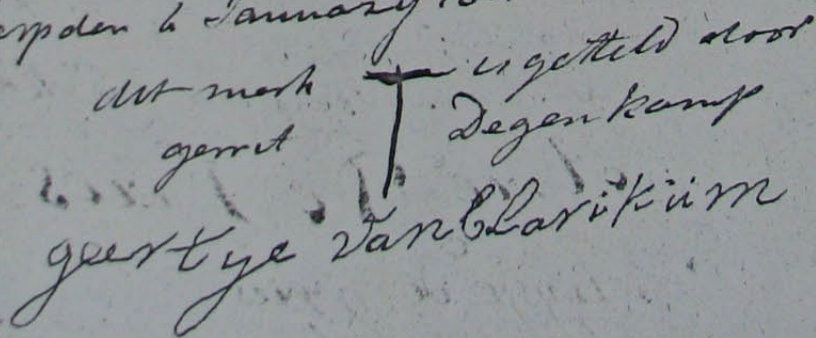 January
dit merk is gesteld door
gerret Degenkamp
geertye van Blarikum